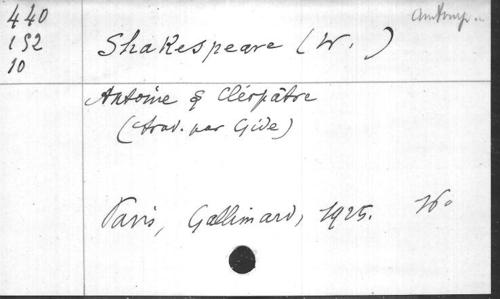 440
152
10
Shakespeare (W.)
Antoine & Cléopâtre
(trad. par Gide)
Paris, Gallimard, 1925. 16°